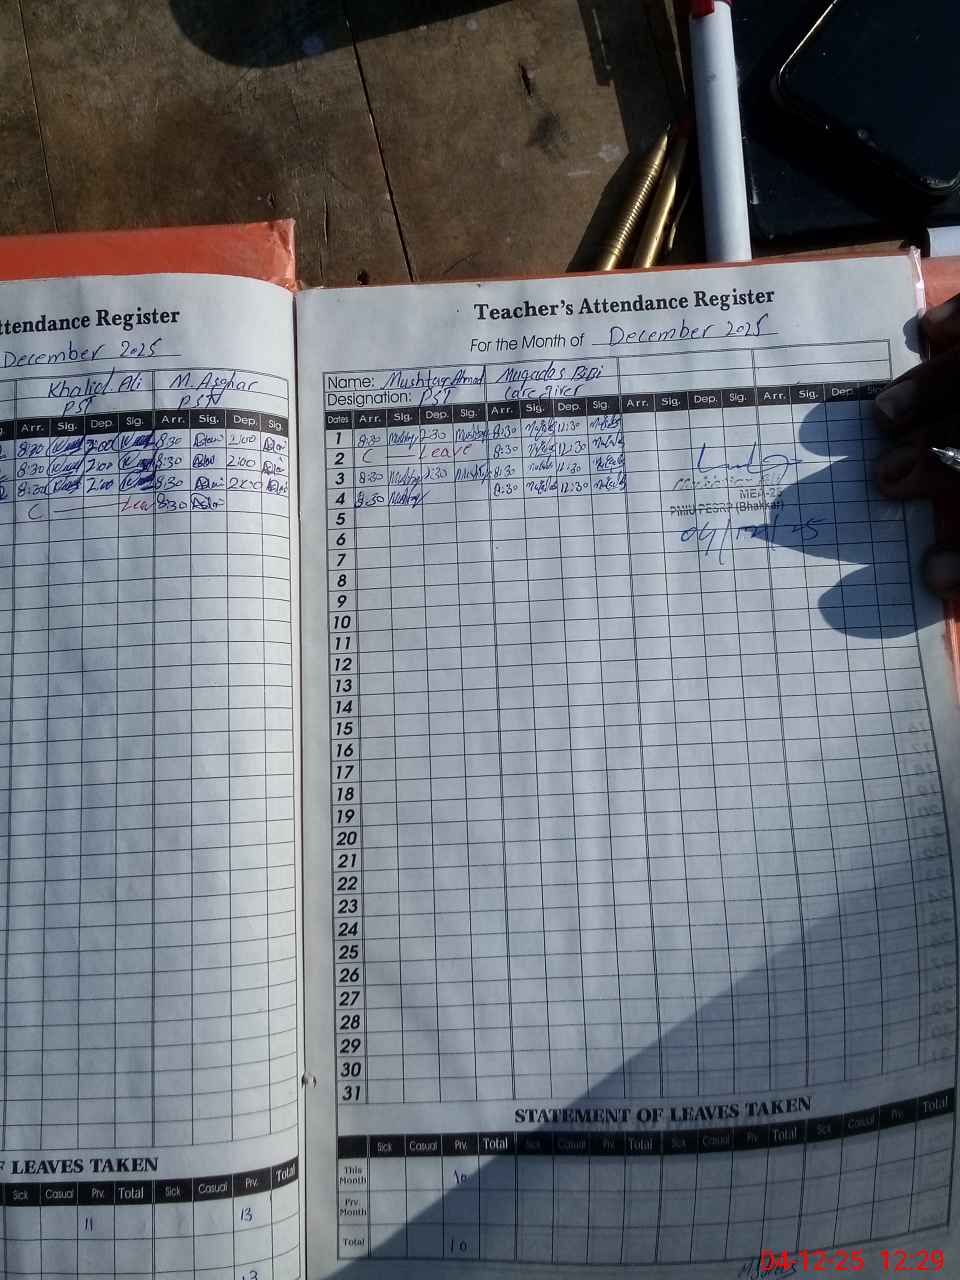 ttendance Register
December 2025
Khalid Ali M. Asghar
PST PST
g. Arr. Sig. Dep. Sig. Arr. Sig. Dep. Sig.
8:30 2:00 8:30 2:00
8:30 2:00 8:30 2:00
8:30 2:00 8:30 2:00
C Leav 8:30
F LEAVES TAKEN
Sick Casual Prv. Total Sick Casual Prv. Total
11 13
13
Teacher's Attendance Register
For the Month of December 2025
Name: Mushtaq Ahmad Muqadas BiBi
Designation: PST Care giver
Dates Arr. Sig. Dep. Sig. Arr. Sig. Dep. Sig. Arr. Sig. Dep. Sig. Arr. Sig. Dep.
1 8:30 Mushtaq 2:30 Mushtaq 8:30 12:30
2 C Leave 8:30 12:30
3 8:30 Mushtaq 2:30 Mushtaq 8:30 12:30
4 8:30 Mushtaq 8:30 12:30
MEA-25
PMIU PESRP (Bhakkar)
04/12/25
5
6
7
8
9
10
11
12
13
14
15
16
17
18
19
20
21
22
23
24
25
26
27
28
29
30
31
STATEMENT OF LEAVES TAKEN
Sick Casual Prv. Total Sick Casual Prv. Total Sick Casual Prv. Total Sick Casual Prv. Total
This Month 10
Prv. Month
Total 10
04-12-25 12:29